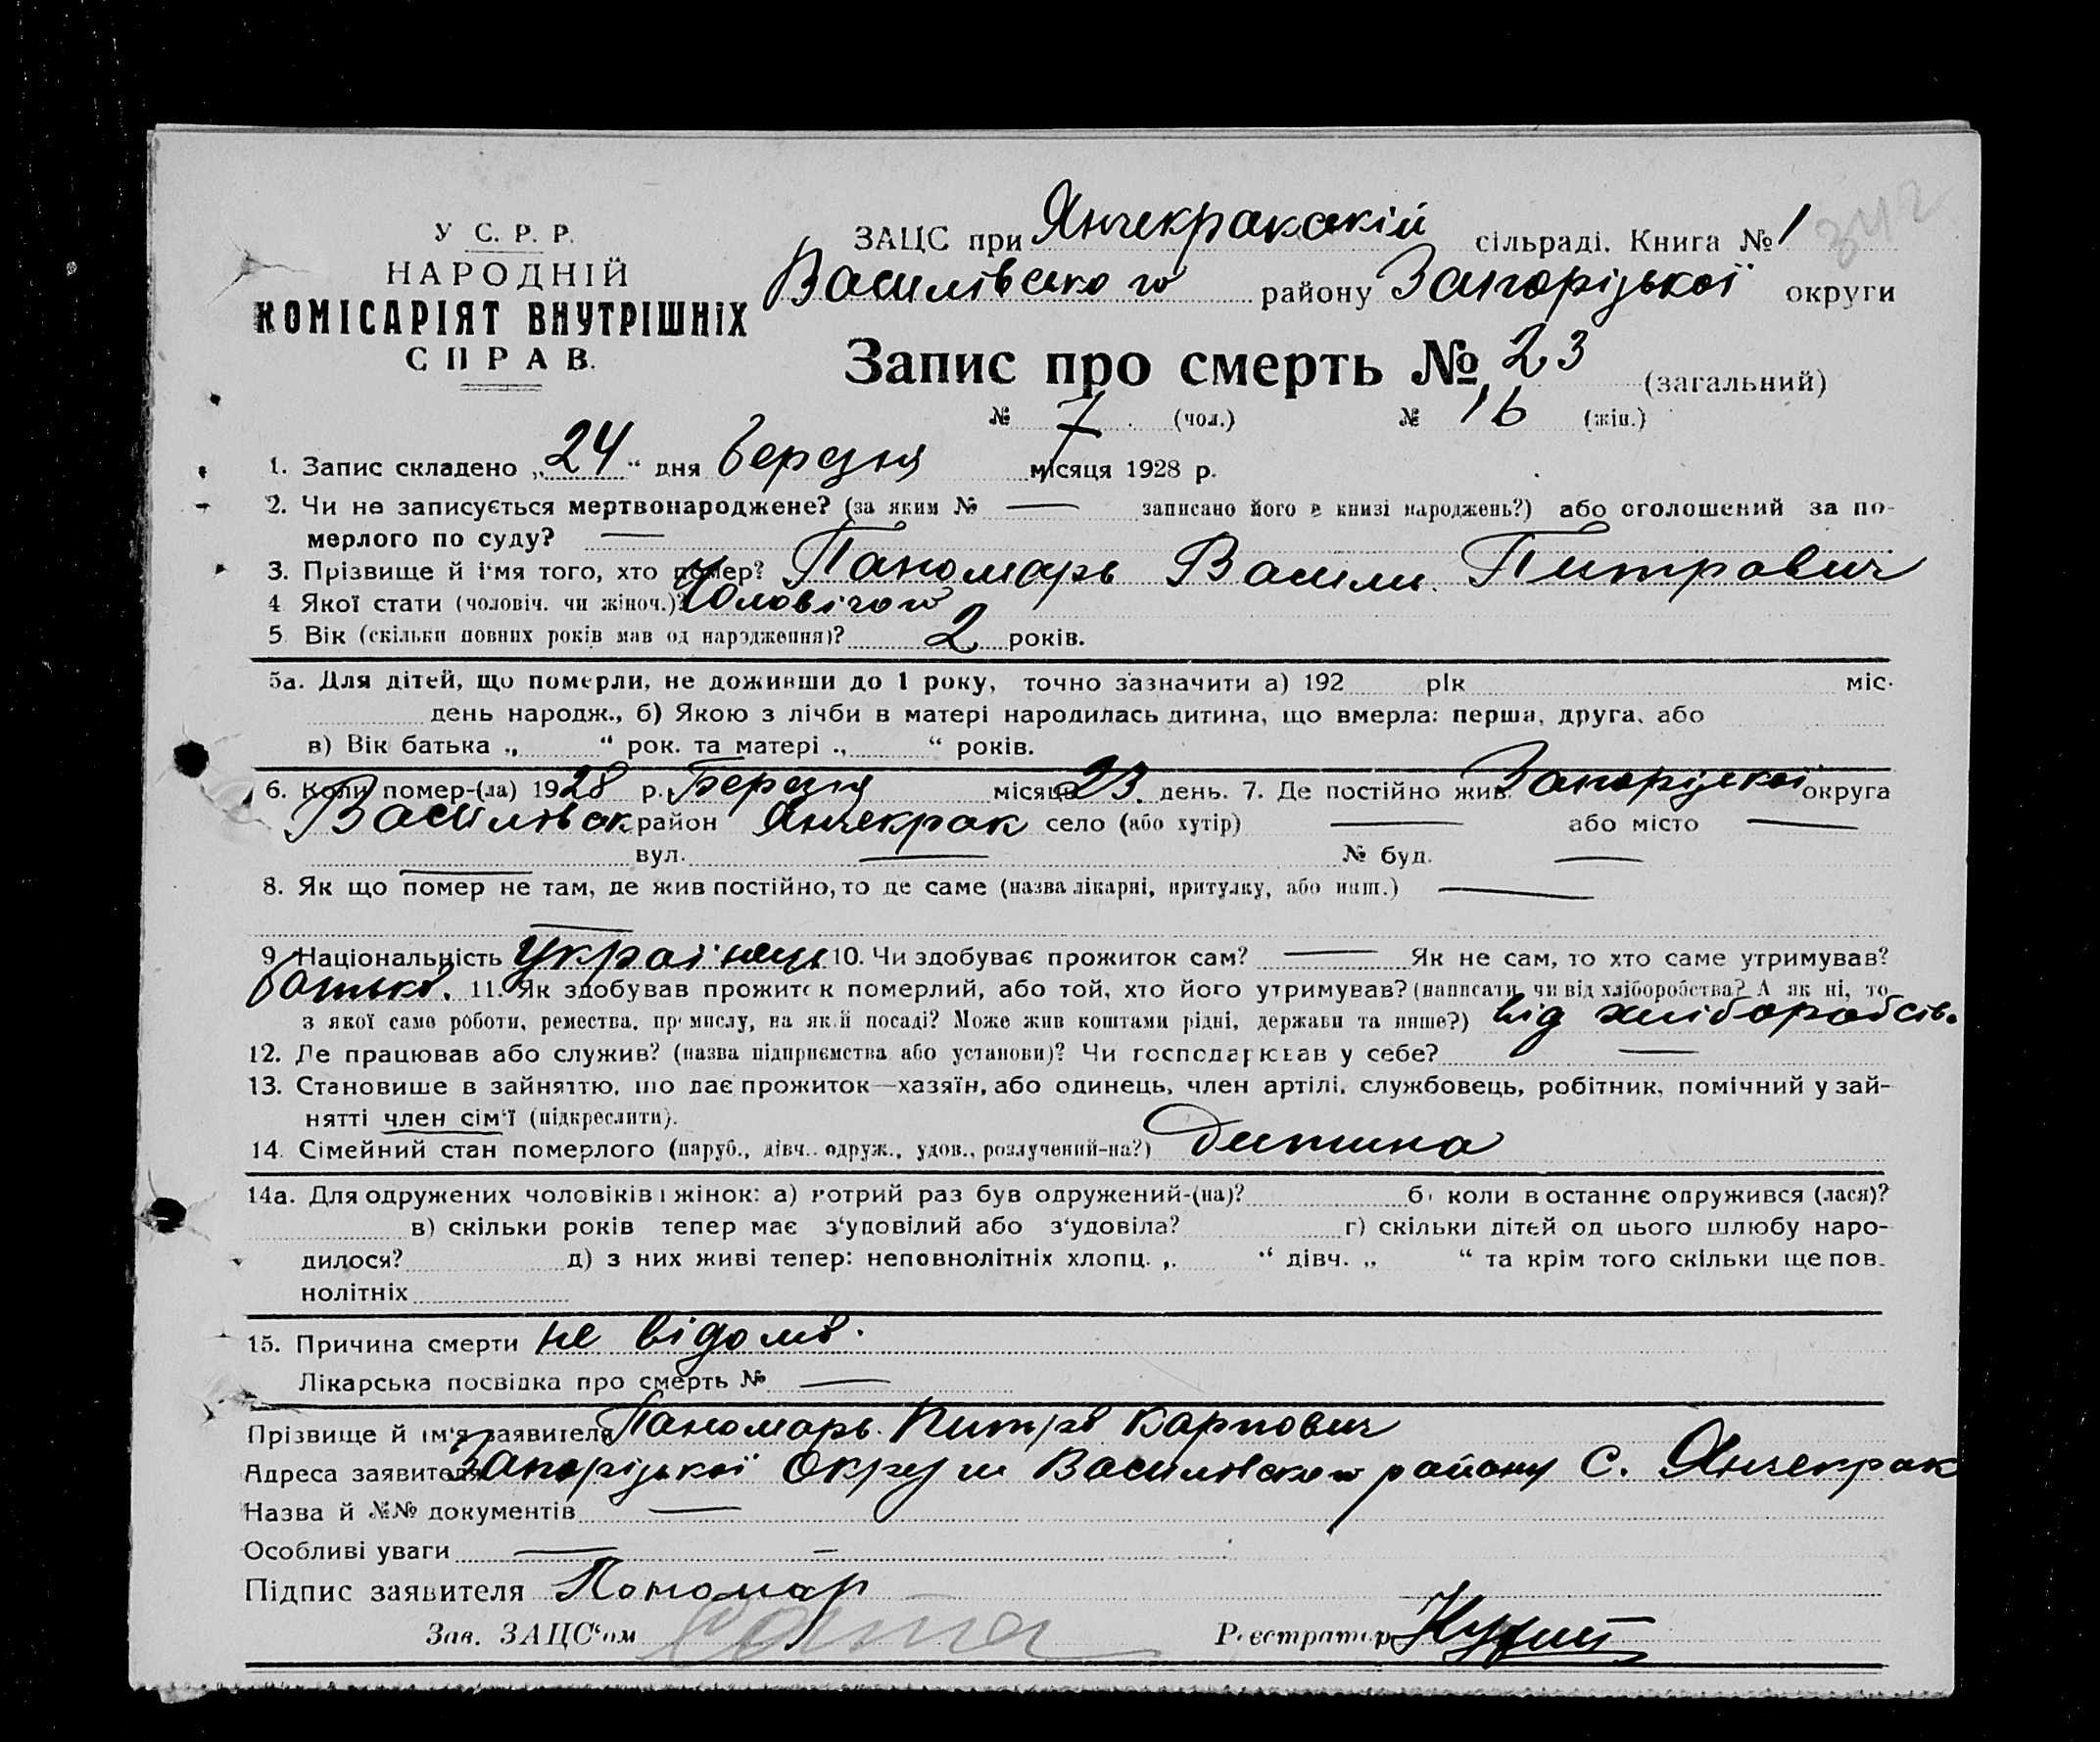 У С. Р. Р.
НАРОДНІЙ
КОМІСАРІЯТ ВНУТРІШНІХ
СПРАВ.
ЗАЦС при Янчекракскій сільраді. Книга № 1
342
Василівського району Запорізької округи
Запис про смерть № 23 (загальний)
№ 7 (чол.) № 16 (жін.)
1. Запис складено „24“ дня березня місяця 1928 р.
2. Чи не записується мертвонароджене? (за яким № — записано його в книзі народжень?) або оголошений за по-
мерлого по суду? —
3. Прізвище й і'мя того, хто помер? Паномарь Васили Питрович
4 Якої стати (чоловіч. чи жіноч.)? Чоловічого
5 Вік (скільки повних років мав од народження)? 2 років.
5а. Для дітей, що померли, не доживши до 1 року, точно зазначити а) 192 рік міс.
день народж., б) Якою з лічби в матері народилась дитина, що вмерла: перша, друга, або
в) Вік батька „ “ рок. та матері „ “ років.
6. Коли помер-(ла) 1928 р. Березня місяця 23 день. 7. Де постійно жив. Запорізької округа
Василівск район Янчекрак село (або хутір) — або місто —
вул. — № буд. —
8. Як що помер не там, де жив постійно, то де саме (назва лікарні, притулку, або инш.) —
9 Національність Українець 10. Чи здобуває прожиток сам? — Як не сам, то хто саме утримував?
батько. 11. Як здобував прожиток померлий, або той, хто його утримував? (написати, чи від хліборобства? А як ні, то
з якої саме роботи, ремества, промислу, на якій посаді? Може жив коштами рідні, держави та инше?) від хліборобсів.
12. Де працював або служив? (назва підприємства або установи)? Чи господарював у себе? —
13. Становише в зайняттю, що дає прожиток—хазяїн, або одинець, член артілі, службовець, робітник, помічний у зай-
нятті член сім'ї (підкреслити).
14. Сімейний стан померлого (паруб., дівч.. одруж., удов., розлучений-на?) Дитина
14а. Для одружених чоловіків і жінок: а) котрий раз був одружений-(на)? б) коли в останнє одружився (лася)?
в) скільки років тепер має з'удовілий або з'удовіла? г) скільки дітей од цього шлюбу наро-
дилося? д) з них живі тепер: неповнолітніх хлопц. „ “ дівч. „ “ та крім того скільки ще пов-
нолітніх
15. Причина смерти не відомо.
Лікарська посвідка про смерть № —
Прізвище й ім'я заявителя Паномарь Питро Карпович
Адреса заявителя Запорізької Округи Василівского району С. Янчекрак
Назва й №№ документів —
Особливі уваги — –
Підпис заявителя Пономар
Зав. ЗАЦС'ом
Реєстратор